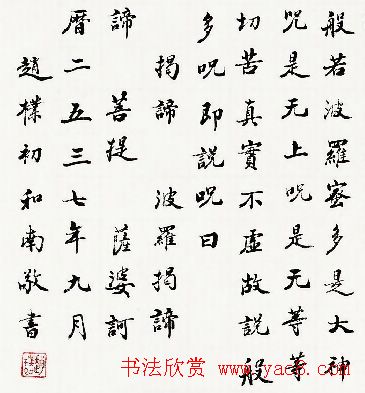 般若波羅蜜多是大神
呪是无上呪是无等等
切苦真實不虛故説般
多呪即説呪曰
揭諦 波羅揭諦
諦 菩提 薩婆訶
曆二五三七年九月
趙樸初和南敬書
书法欣赏 www.yac8.com